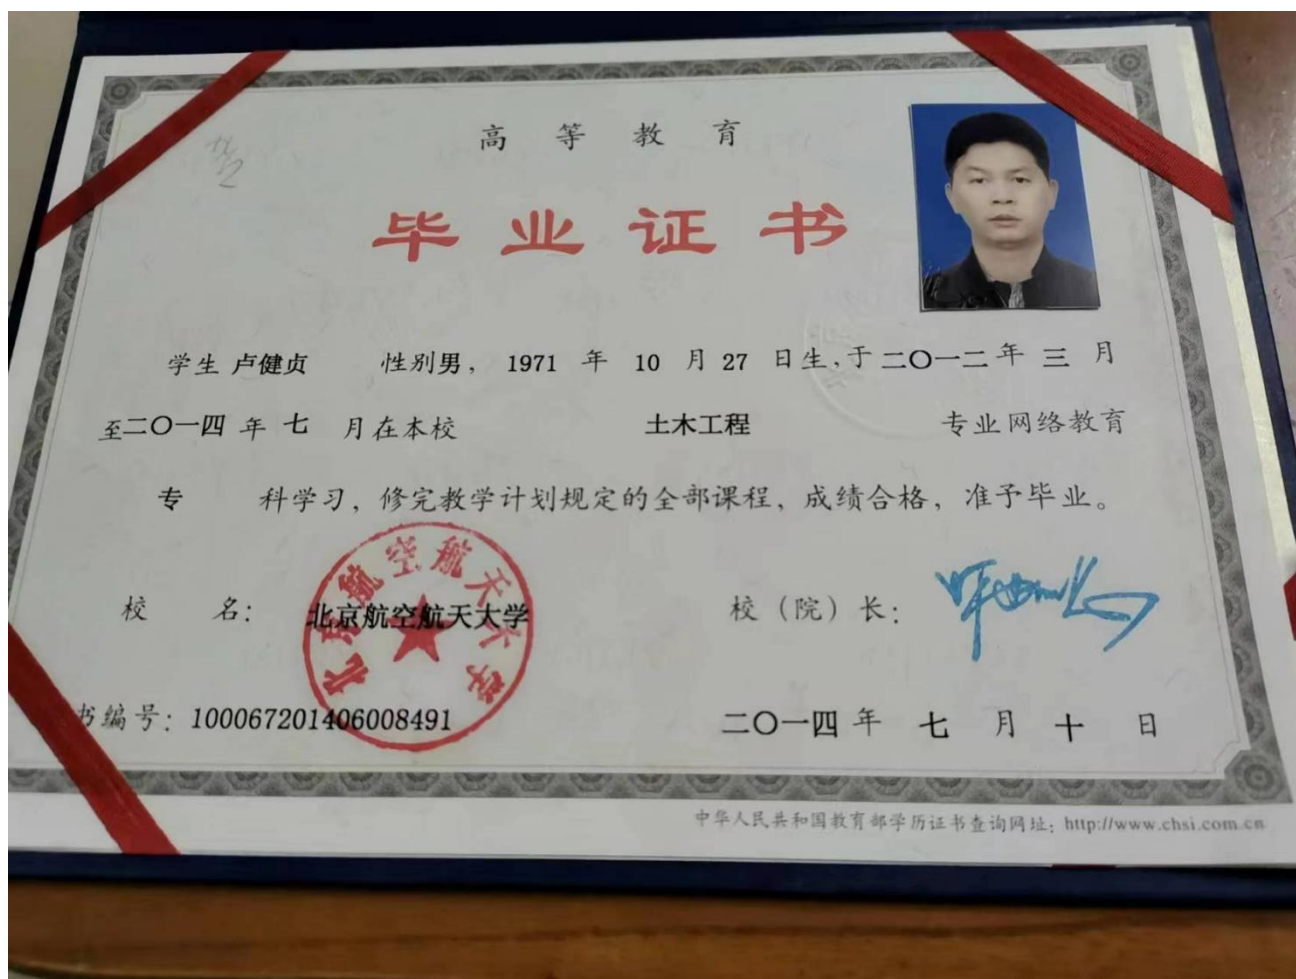 高等教育
毕业证书
学生 卢健贞 性别男，1971 年 10 月 27 日生，于二〇一二年 三 月
至二〇一四 年 七 月在本校 土木工程 专业网络教育
专 科学习，修完教学计划规定的全部课程，成绩合格，准予毕业。
北京航空航天大学
校 名： 北京航空航天大学 校（院）长：
书编号：100067201406008491 二〇一四 年 七 月 十 日
中华人民共和国教育部学历证书查询网址：http://www.chsi.com.cn